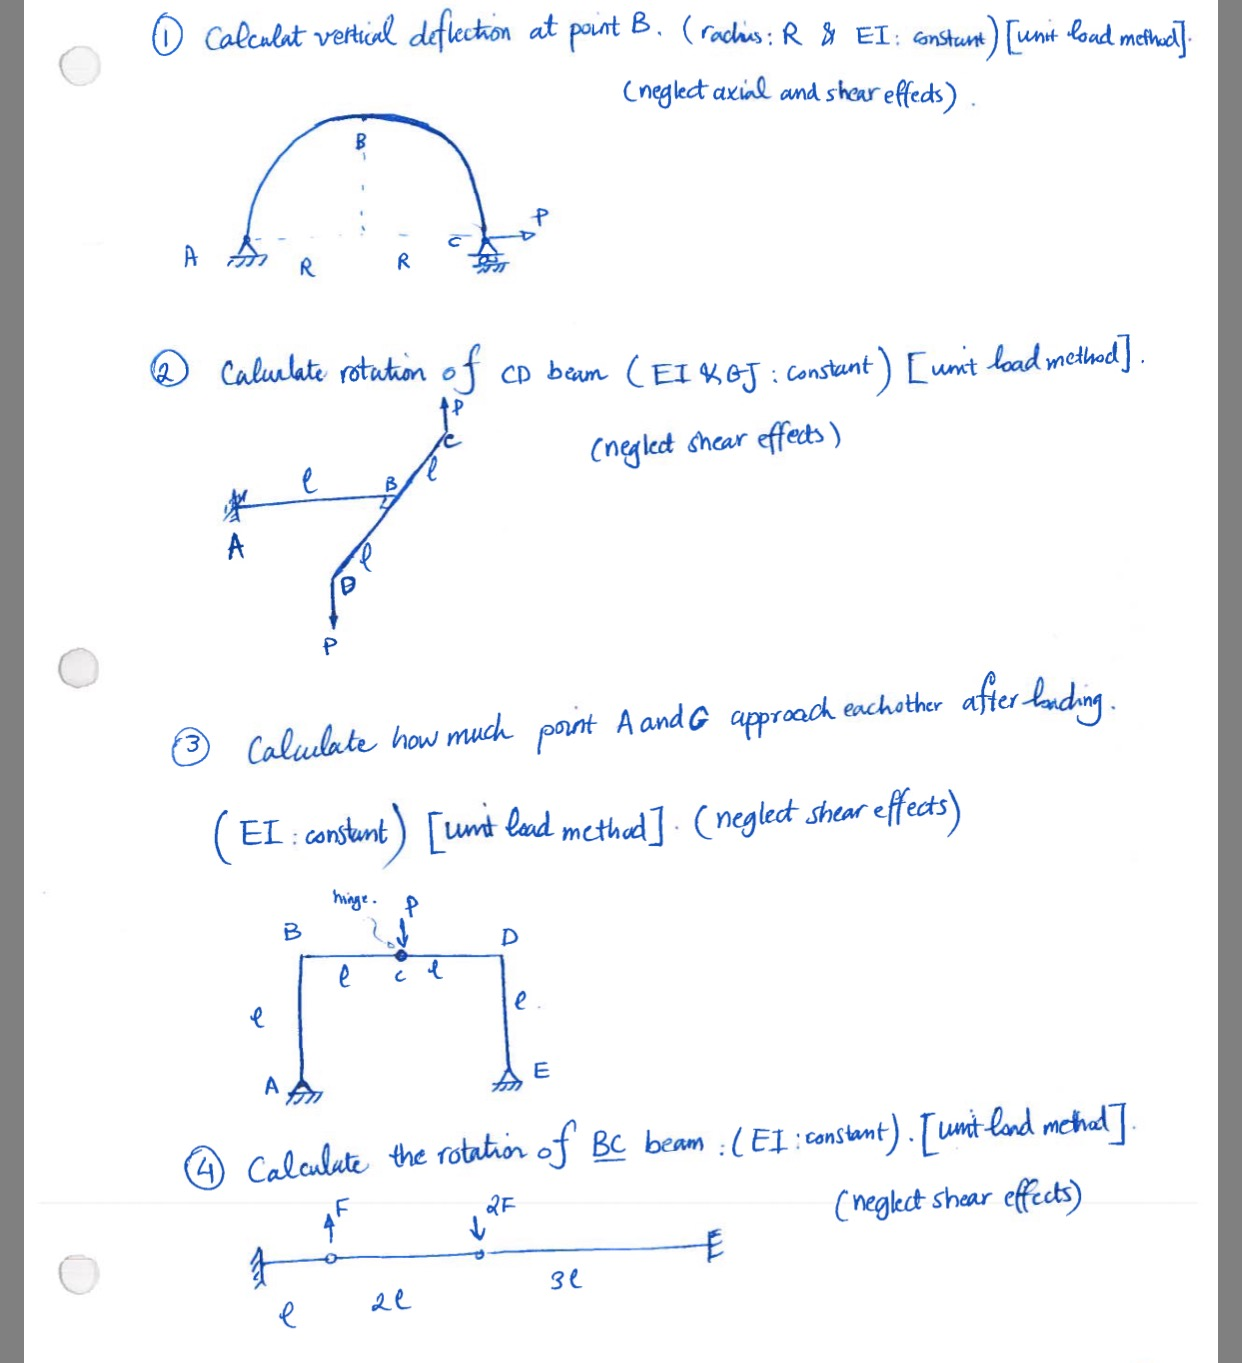 ① Calculat vertical deflection at point B. (radius: R & EI: constant) [unit load method].
(neglect axial and shear effects).
B
P
A
C
R
R
② Calculate rotation of CD beam (EI & GJ: constant) [unit load method].
P
C
(neglect shear effects)
l
l
B
A
l
D
P
③ Calculate how much point A and G approach eachother after loading.
(EI: constant) [unit load method]. (neglect shear effects)
hinge.
P
B
D
l
c
l
l
l.
A
E
④ Calculate the rotation of BC beam: (EI: constant). [unit load method].
(neglect shear effects)
F
2F
3l
2l
l